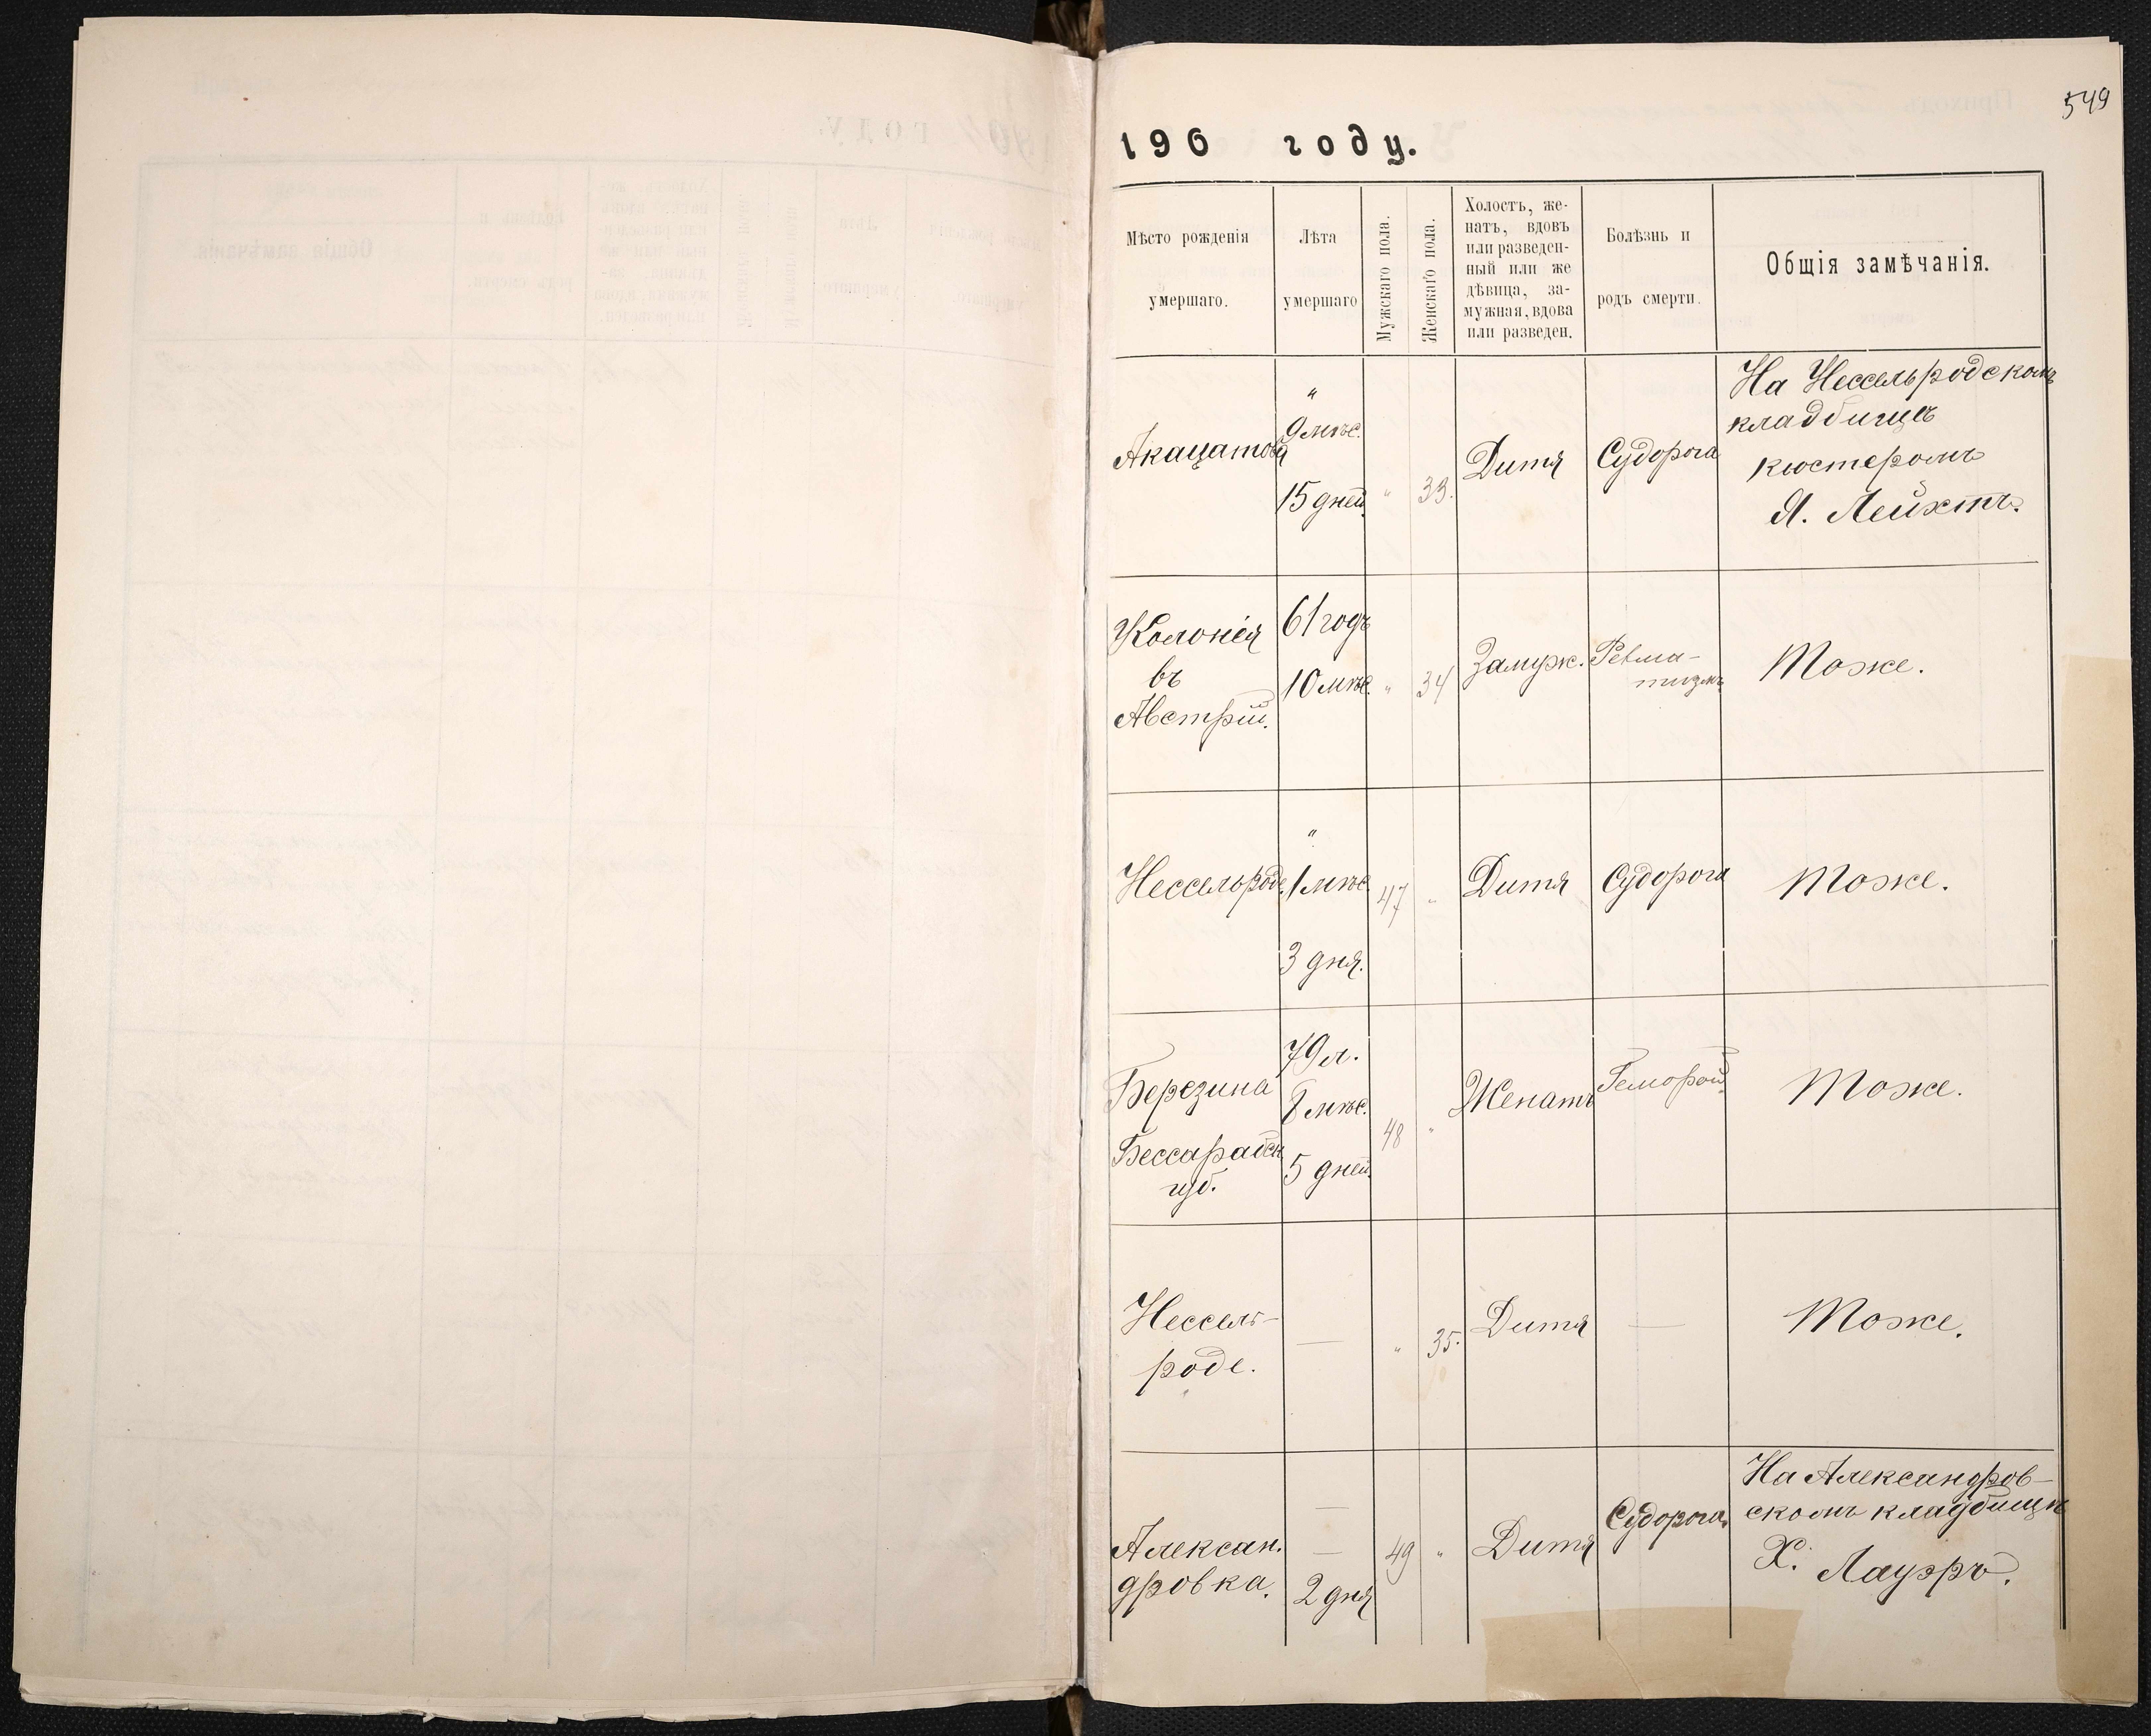 549
190 году.
Мѣсто рожденія
умершаго.
Лѣта
умершаго
Мужскаго пола.
Женскаго пола.
Холостъ, же-
натъ, вдовъ
или разведен-
ный или же
дѣвица, за-
мужная, вдова
или разведен.
Болѣзнь и
родъ смерти.
Общія замѣчанія.
Акацатова
"
9 мѣс.
15 дней.
"
33.
Дитя
Судорога
На Нессельродскомъ
кладбищѣ
кюстеромъ
Я. Лейхтъ.
Колонія
въ
Австріи.
61 годъ
10 мѣс.
"
34
Замуж.
Ревма-
тизмъ
Тоже.
Нессельроде.
"
1 мѣс.
3 дня.
47
"
Дитя
Судорога
Тоже.
Березина
Бессарабск.
губ.
79 л.
8 мѣс.
5 дней.
48
"
Женатъ
Геморой.
Тоже.
Нессель-
роде.
—
"
35.
Дитя
—
Тоже.
Алексан.
дровка.
—
—
2 дня
49
"
Дитя
Судорога.
На Александров-
скомъ кладбищѣ
Х. Лауэръ.